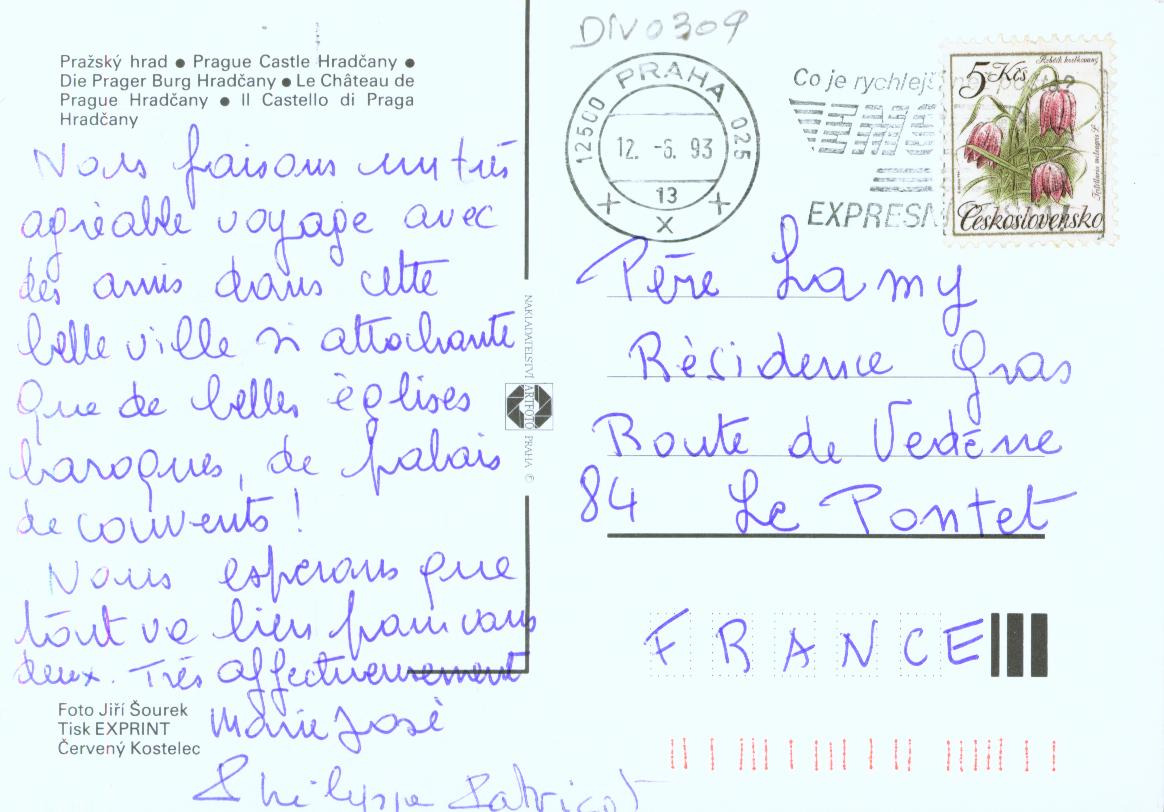 Pražský hrad ● Prague Castle Hradčany ●
Die Prager Burg Hradčany ● Le Château de
Prague Hradčany ● Il Castello di Praga
Hradčany
Nous faisons un très
agréable voyage avec
des amis dans cette
belle ville si attachante
Que de belles églises
baroques, de palais
de couvents !
Nous esperons que
tout va bien pour vous
deux. Très affectueusement
Marie José
Philippe
Foto Jiří Šourek
Tisk EXPRINT
Červený Kostelec
NAKLADATELSTVÍ ARTFOTO PRAHA ©
DIV0309
PRAHA 025
12500
12. -6. 93
13
Co je rychlejší než pošta?
EMS
EXPRESNÍ
5 Kčs
Československo
Père Lamy
Résidence Gras
Route de Vedène
84 Le Pontet
FRANCE